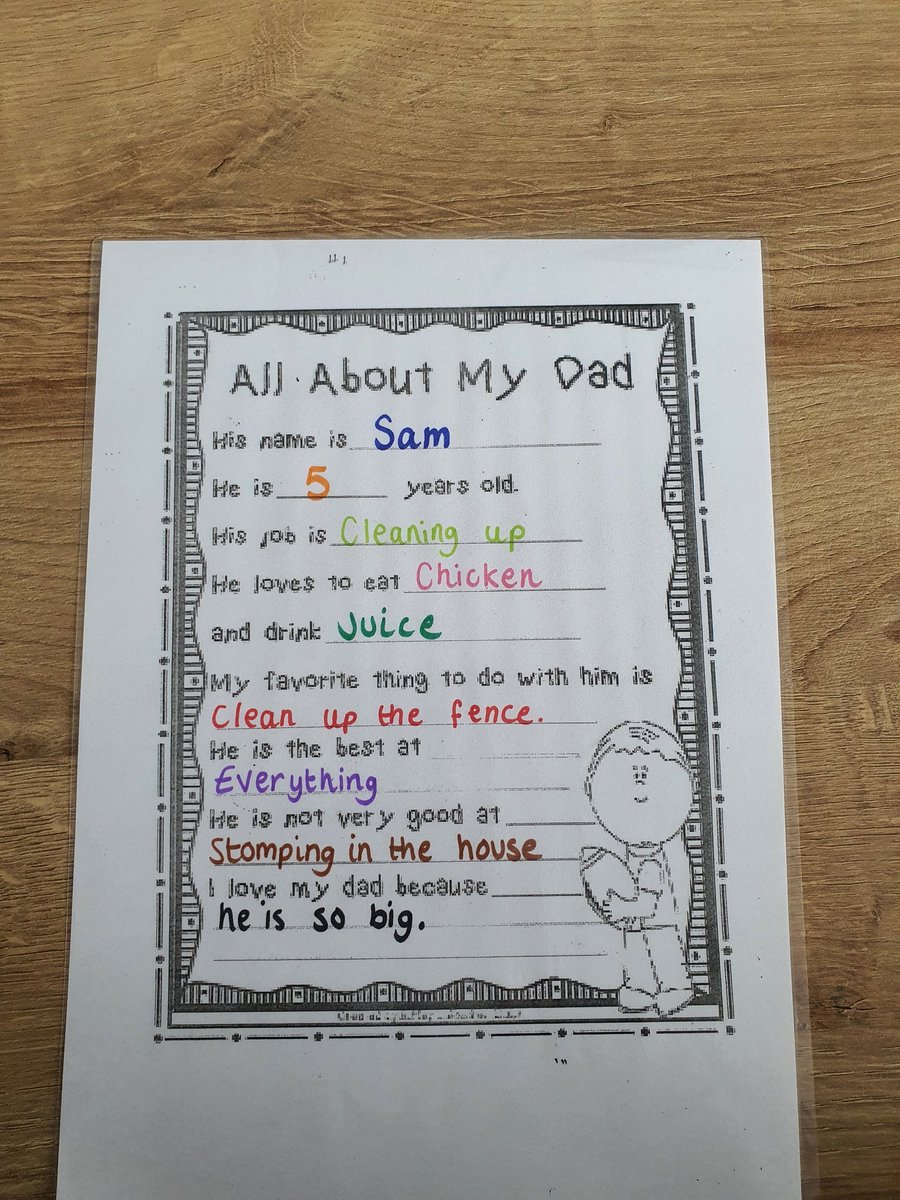 All About My Dad
His name is Sam
He is 5 years old.
His job is Cleaning up
He loves to eat Chicken
and drink Juice
My favorite thing to do with him is
Clean up the fence.
He is the best at
Everything
He is not very good at
Stomping in the house
I love my dad because
he is so big.